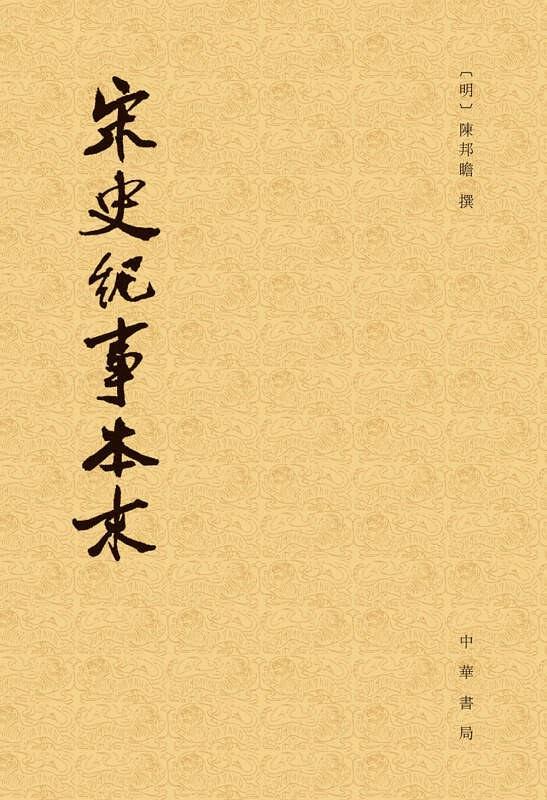 〔明〕陳邦瞻 撰
宋史紀事本末
中華書局